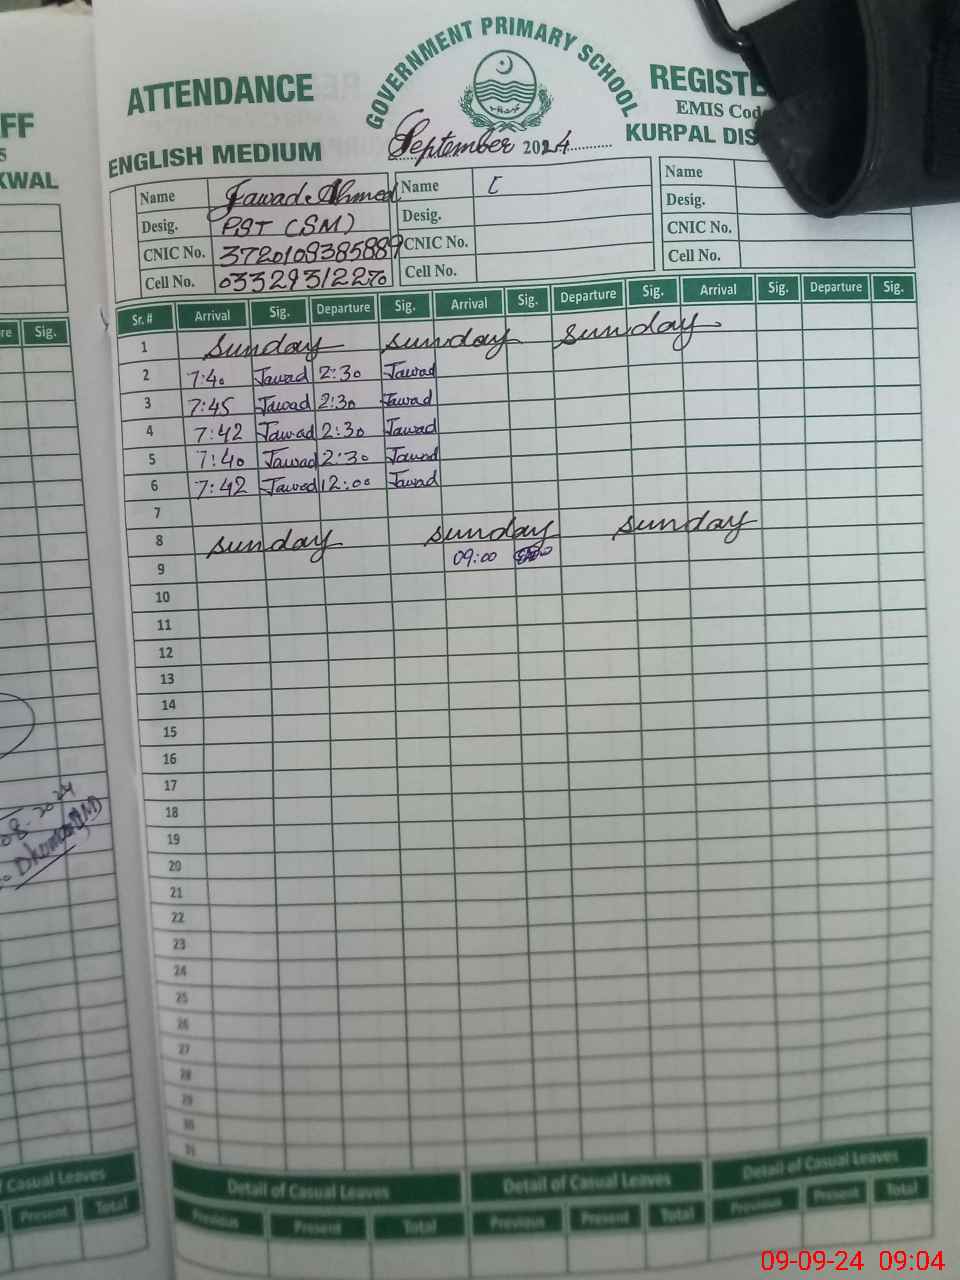 FF
5
KWAL
re Sig.
08.2024
Casual Leaves
Present Total
GOVERNMENT PRIMARY SCHOOL
ATTENDANCE REGISTE
EMIS Cod
ENGLISH MEDIUM September 2024 KURPAL DIS
Name Jawad Ahmed Name [ Name
Desig. PST (SM) Desig. Desig.
CNIC No. 3720109385889 CNIC No. CNIC No.
Cell No. 03329312270 Cell No. Cell No.
Sr. # Arrival Sig. Departure Sig. Arrival Sig. Departure Sig. Arrival Sig. Departure Sig.
1 Sunday Sunday Sunday
2 7:40 Jawad 2:30 Jawad
3 7:45 Jawad 2:30 Jawad
4 7:42 Jawad 2:30 Jawad
5 7:40 Jawad 2:30 Jawad
6 7:42 Jawad 12:00 Jawad
7
8 Sunday Sunday Sunday
9 09:00
10
11
12
13
14
15
16
17
18
19
20
21
22
23
24
25
26
27
28
29
30
31
Detail of Casual Leaves Detail of Casual Leaves Detail of Casual Leaves
Previous Present Total Previous Present Total Previous Present Total
09-09-24 09:04